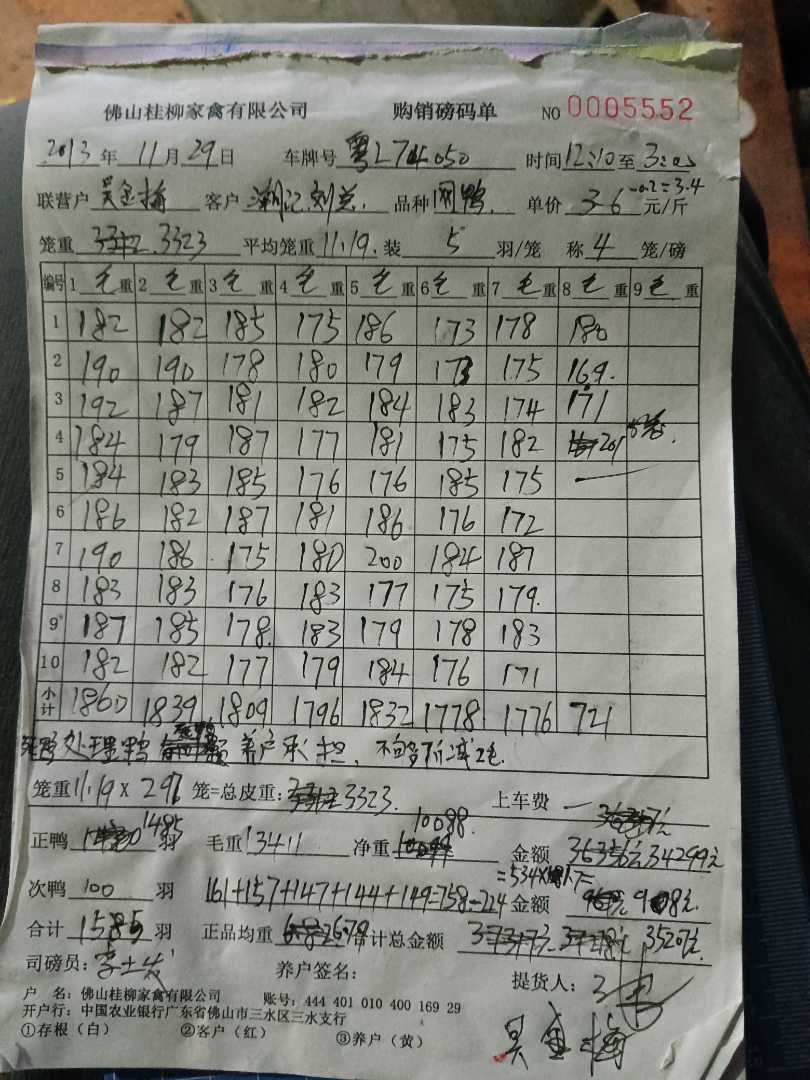 佛山桂柳家禽有限公司 购销磅码单 NO 0005552
2013年 11月29日 车牌号 粤L74050 时间12:10至3:00
-0.2=3.4
联营户 吴金梅 客户 品种 单价 3.6 元/斤
笼重 3323 平均笼重 11.19. 装 5 羽/笼 称 4 笼/磅
编号 1 毛重 2 毛重 3 毛重 4 毛重 5 毛重 6 毛重 7 毛重 8 毛重 9 毛重
1 182 182 185 175 186 173 178 180
2 190 190 178 180 179 173 175 169.
3 192 187 181 182 184 183 174 171
4 184 179 187 177 181 175 182 201
5 184 183 185 176 176 185 175 —
6 186 182 187 181 186 176 172
7 190 186 175 180 200 184 187
8 183 183 176 183 177 175 179.
9 187 185 178. 183 179 178 183
10 182 182 177 179 184 176 171
小计 1860 1839 1809 1796 1832 1778 1776 721
死鸭处理鸭 养户承担,
笼重 11.19 x 296 笼=总皮重: 3323. 上车费 —
正鸭 1485 羽 毛重 13411 净重 10088. 金额 34299元
次鸭 100 羽 161+157+147+144+149=758-224=534 金额 908元.
合计 1585 羽 正品均重 6.79 合计总金额 35207元.
司磅员: 养户签名: 提货人:
户 名: 佛山桂柳家禽有限公司 账号: 444 401 010 400 169 29
开户行: 中国农业银行广东省佛山市三水区三水支行
①存根(白) ②客户(红) ③养户(黄) 吴金梅